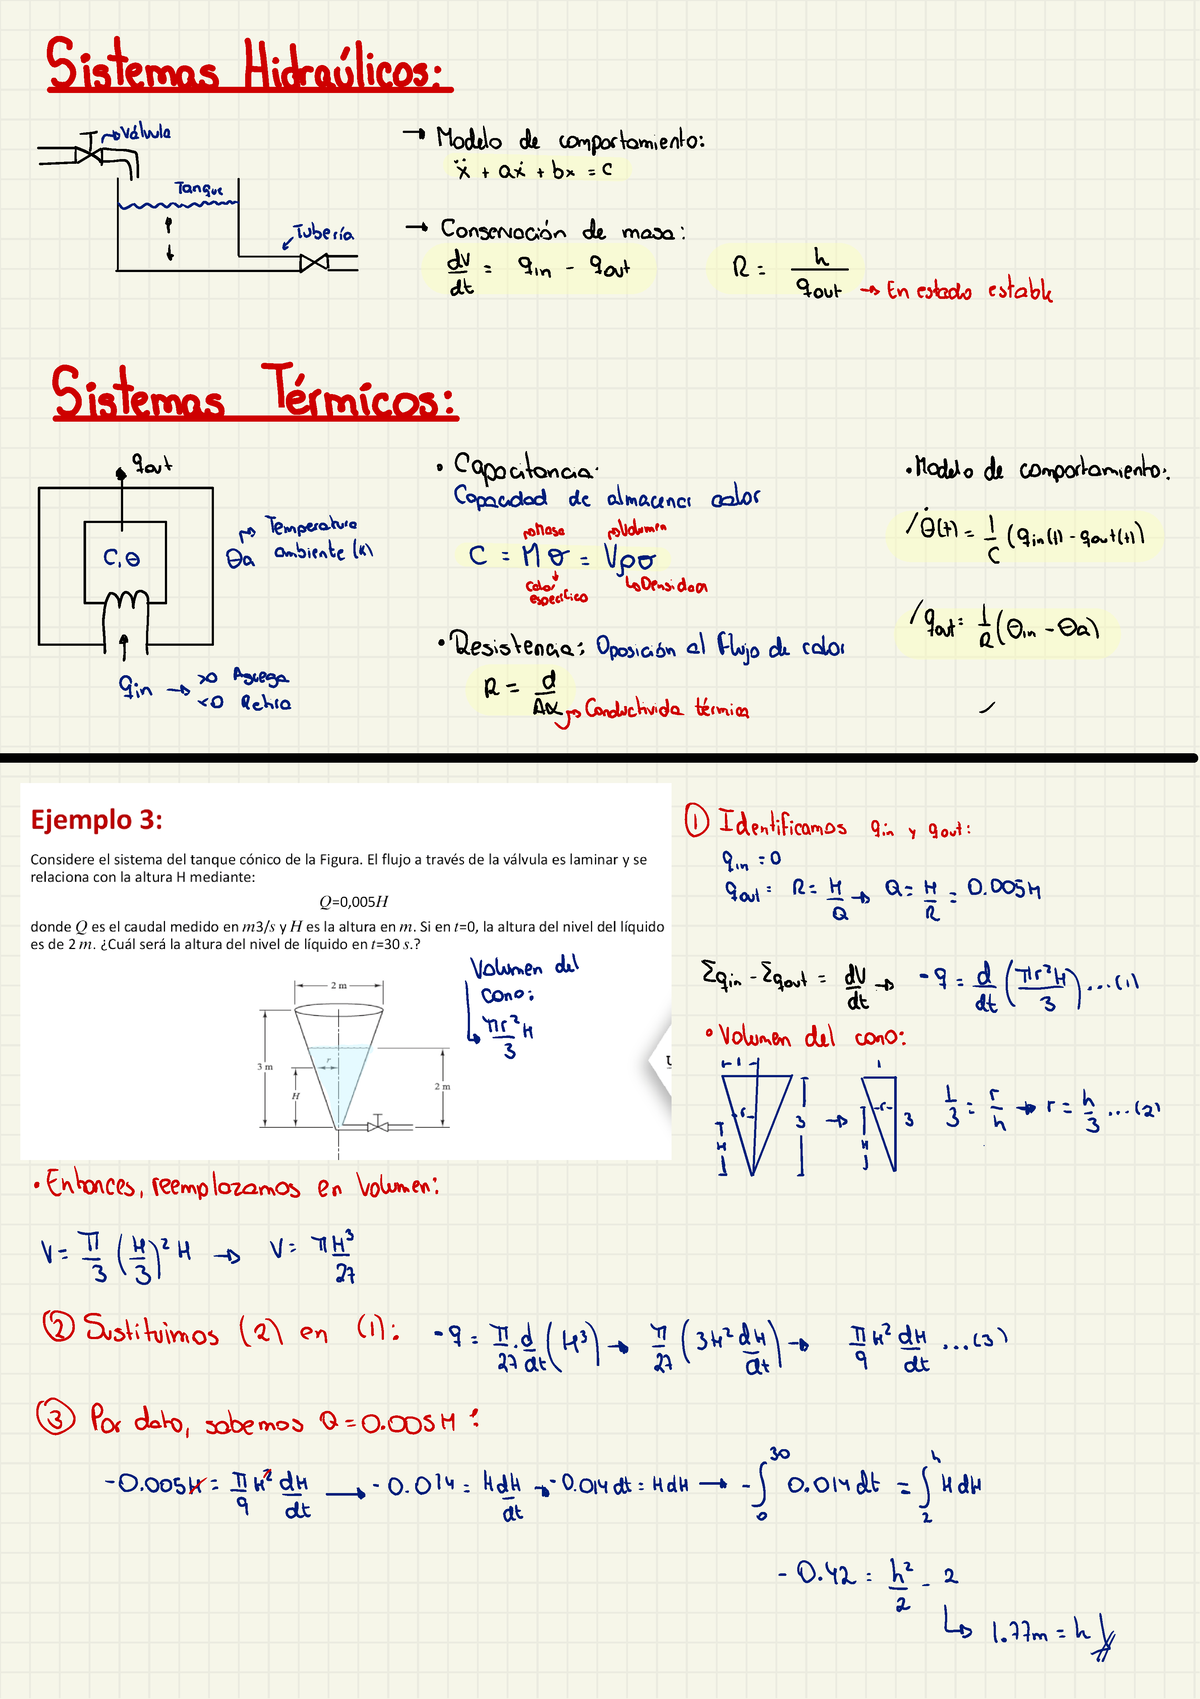 Sistemas Hidraúlicos:
Válvula
Tanque
Tubería
→ Modelo de comportamiento:
ẍ + aẋ + bx = c
→ Conservación de masa:
dV/dt = qin - qout
R = h/qout → En estado estable
Sistemas Térmicos:
qout
C, θ
Temperatura
θa ambiente (K)
qin → >0 Agrega
<0 Retira
• Capacitancia:
Capacidad de almacenar calor
Masa Volumen
C = Mσ = Vρσ
Calor específico Densidad
• Resistencia: Oposición al flujo de calor
R = d/Aα → Conductivida térmica
• Modelo de comportamiento:
/ θ̇(t) = 1/C (qin(t) - qout(t))
/ qout = 1/R (θin - θa)
Ejemplo 3:
Considere el sistema del tanque cónico de la Figura. El flujo a través de la válvula es laminar y se
relaciona con la altura H mediante:
Q=0,005H
donde Q es el caudal medido en m3/s y H es la altura en m. Si en t=0, la altura del nivel del líquido
es de 2 m. ¿Cuál será la altura del nivel de líquido en t=30 s.?
2 m
3 m
r
H
2 m
Volumen del
cono:
πr²H/3
① Identificamos qin y qout:
qin = 0
qout = R = H/Q → Q = H/R = 0.005H
Σqin - Σqout = dV/dt → -q = d/dt (πr²H/3) ...(1)
• Volumen del cono:
1
r
H
3
→
1
r
H
3
1/3 = r/h → r = h/3 ...(2)
• Entonces, reemplazamos en Volumen:
V = π/3 (H/3)² H → V = πH³/27
② Sustituimos (2) en (1): -q = π/27 . d/dt (H³) → π/27 (3H² dH/dt) → π/9 H² dH/dt ...(3)
③ Por dato, sabemos Q = 0.005H :
-0.005H = π/9 H² dH/dt → -0.014 = H dH/dt → -0.014 dt = H dH → -∫₀³⁰ 0.014 dt = ∫₂ʰ H dH
-0.42 = h²/2 - 2
↳ 1.77m = h